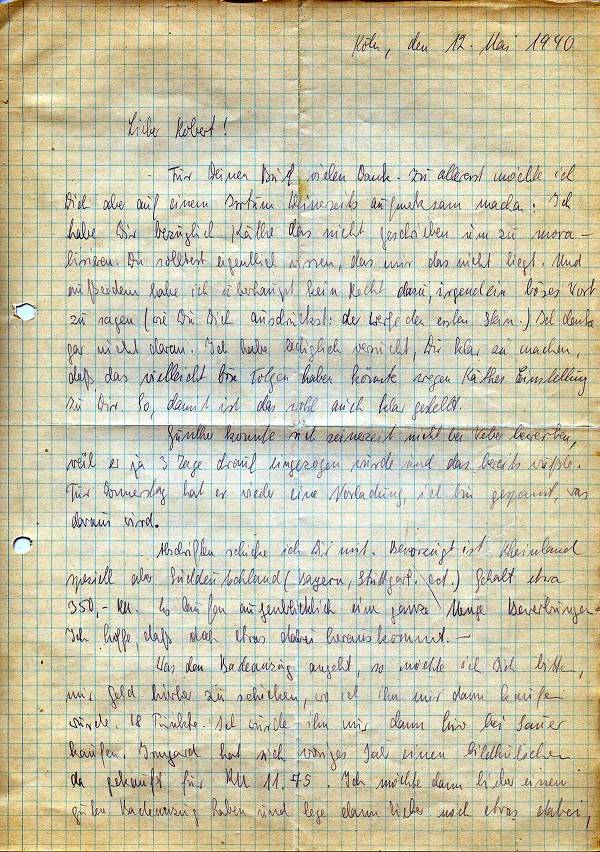 Köln, den 12. Mai 1940
Lieber Robert!
Für Deinen Brief vielen Dank. Zu allererst möchte ich
Dich aber auf einen Irrtum Deinerseits aufmerksam machen: Ich
habe Dir bezüglich Käthe das nicht geschrieben um zu mora-
lisieren. Du solltest eigentlich wissen, das mir das nicht liegt. Und
außerdem habe ich überhaupt kein Recht dazu, irgendein böses Wort
zu sagen (wie Du Dich ausdrückst: der werfe den ersten Stein.) Ich denke
gar nicht daran. Ich habe lediglich versucht, Dir klar zu machen,
daß das vielleicht böse Folgen haben könnte wegen Käthes Einstellung
zu Dir. So, damit ist das wohl auch klar gestellt.
Günther konnte sich seinerzeit nicht bei bewerben,
weil er ja 3 Tage drauf eingezogen wurde und das bereits wußte.
Für Donnerstag hat er wieder eine Vorladung, ich bin gespannt, was
daraus wird.
Abschriften schicke ich Dir mit. Bevorzugt ist Rheinland
speziell aber Süddeutschland (Bayern, Stuttgart. ect.) Gehalt etwa
350,- RM. Es laufen augenblicklich eine ganze Menge Bewerbungen.
Ich hoffe, daß doch etwas dabei herauskommt. —
Was den Badeanzug angeht, so möchte ich Dich bitten,
mir Geld hierher zu schicken, wo ich ihn mir dann kaufen
würde. 18 Punkte. Ich würde ihn mir dann hier bei
kaufen. Irmgard hat sich voriges Jahr einen bildhübschen
da gekauft für RM 11.75. Ich möchte dann lieber einen
guten Badeanzug haben und lege dann lieber noch etwas dabei,